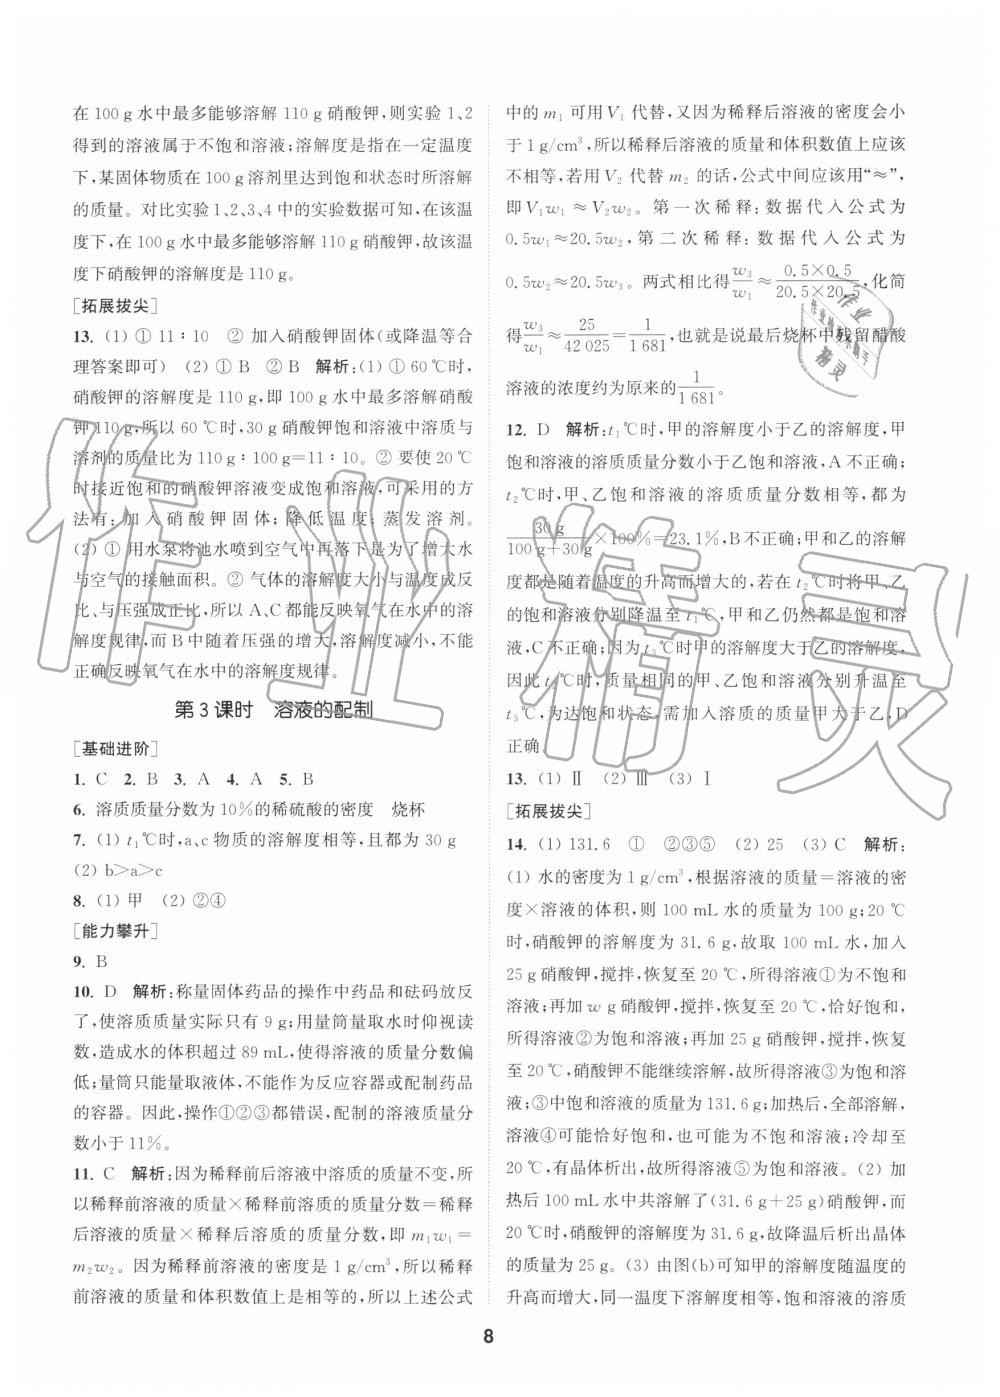 在 100 g 水中最多能够溶解 110 g 硝酸钾,则实验 1、2
得到的溶液属于不饱和溶液;溶解度是指在一定温度
下,某固体物质在 100 g 溶剂里达到饱和状态时所溶解
的质量。对比实验 1、2、3、4 中的实验数据可知,在该温
度下,在 100 g 水中最多能够溶解 110 g 硝酸钾,故该温
度下硝酸钾的溶解度是 110 g。
[拓展拔尖]
13. (1) ① 11∶10 ② 加入硝酸钾固体(或降温等合
理答案即可) (2) ① B ② B 解析:(1) ① 60 ℃时,
硝酸钾的溶解度是 110 g,即 100 g 水中最多溶解硝酸
钾 110 g,所以 60 ℃时,30 g 硝酸钾饱和溶液中溶质与
溶剂的质量比为 110 g∶100 g=11∶10。② 要使 20 ℃
时接近饱和的硝酸钾溶液变成饱和溶液,可采用的方
法有:加入硝酸钾固体;降低温度;蒸发溶剂。
(2) ① 用水泵将池水喷到空气中再落下是为了增大水
与空气的接触面积。② 气体的溶解度大小与温度成反
比、与压强成正比,所以 A、C 都能反映氧气在水中的溶
解度规律,而 B 中随着压强的增大,溶解度减小,不能
正确反映氧气在水中的溶解度规律。
第 3 课时 溶液的配制
[基础进阶]
1. C 2. B 3. A 4. A 5. B
6. 溶质质量分数为 10%的稀硫酸的密度 烧杯
7. (1) t₁℃时,a、c 物质的溶解度相等,且都为 30 g
(2) b>a>c
8. (1) 甲 (2) ②④
[能力攀升]
9. B
10. D 解析:称量固体药品的操作中药品和砝码放反
了,使溶质质量实际只有 9 g;用量筒量取水时仰视读
数,造成水的体积超过 89 mL,使得溶液的质量分数偏
低;量筒只能量取液体,不能作为反应容器或配制药品
的容器。因此,操作①②③都错误,配制的溶液质量分
数小于 11%。
11. C 解析:因为稀释前后溶液中溶质的质量不变,所
以稀释前溶液的质量×稀释前溶质的质量分数=稀释
后溶液的质量×稀释后溶质的质量分数,即 m₁w₁=
m₂w₂。因为稀释前溶液的密度是 1 g/cm³,所以稀释
前溶液的质量和体积数值上是相等的,所以上述公式
中的 m₁ 可用 V₁ 代替,又因为稀释后溶液的密度会小
于 1 g/cm³,所以稀释后溶液的质量和体积数值上应该
不相等,若用 V₂ 代替 m₂ 的话,公式中间应该用“≈”,
即 V₁w₁≈V₂w₂。第一次稀释:数据代入公式为
0.5w₁≈20.5w₂,第二次稀释:数据代入公式为
0.5w₂≈20.5w₃。两式相比得w₃/w₁≈(0.5×0.5)/(20.5×20.5),化简
得w₃/w₁≈25/42 025=1/1 681,也就是说最后烧杯中残留醋酸
溶液的浓度约为原来的1/1 681。
12. D 解析:t₁℃时,甲的溶解度小于乙的溶解度,甲
饱和溶液的溶质质量分数小于乙饱和溶液,A 不正确;
t₂℃时,甲、乙饱和溶液的溶质质量分数相等,都为
30 g/(100 g+30 g)×100%=23.1%,B 不正确;甲和乙的溶解
度都是随着温度的升高而增大的,若在 t₂℃时将甲、乙
的溶液分别降温至 t₁℃,甲和乙仍然都是饱和溶
液,C 不正确;因为 t₃℃时甲的溶解度大于乙的溶解度,
因此 t₁℃时,质量相同的甲、乙饱和溶液分别升温至
t₃℃,为达饱和状态,需加入溶质的质量甲大于乙,D
正确。
13. (1) Ⅱ (2) Ⅲ (3) Ⅰ
[拓展拔尖]
14. (1) 131.6 ① ②③⑤ (2) 25 (3) C 解析:
(1) 水的密度为 1 g/cm³,根据溶液的质量=溶液的密
度×溶液的体积,则 100 mL 水的质量为 100 g;20 ℃
时,硝酸钾的溶解度为 31.6 g,故取 100 mL 水,加入
25 g 硝酸钾,搅拌,恢复至 20 ℃,所得溶液①为不饱和
溶液;再加 w g 硝酸钾,搅拌,恢复至 20 ℃,恰好饱和,
所得溶液②为饱和溶液;再加 25 g 硝酸钾,搅拌,恢复
至 20 ℃,硝酸钾不能继续溶解,故所得溶液③为饱和溶
液;③中饱和溶液的质量为 131.6 g;加热后,全部溶解,
溶液④可能恰好饱和,也可能为不饱和溶液;冷却至
20 ℃,有晶体析出,故所得溶液⑤为饱和溶液。(2) 加
热后 100 mL 水中共溶解了(31.6 g+25 g)硝酸钾,而
20 ℃时,硝酸钾的溶解度为 31.6 g,故降温后析出晶体
的质量为 25 g。(3) 由图(b)可知甲的溶解度随温度的
升高而增大,同一温度下溶解度相等,饱和溶液的溶质
8
作业精灵